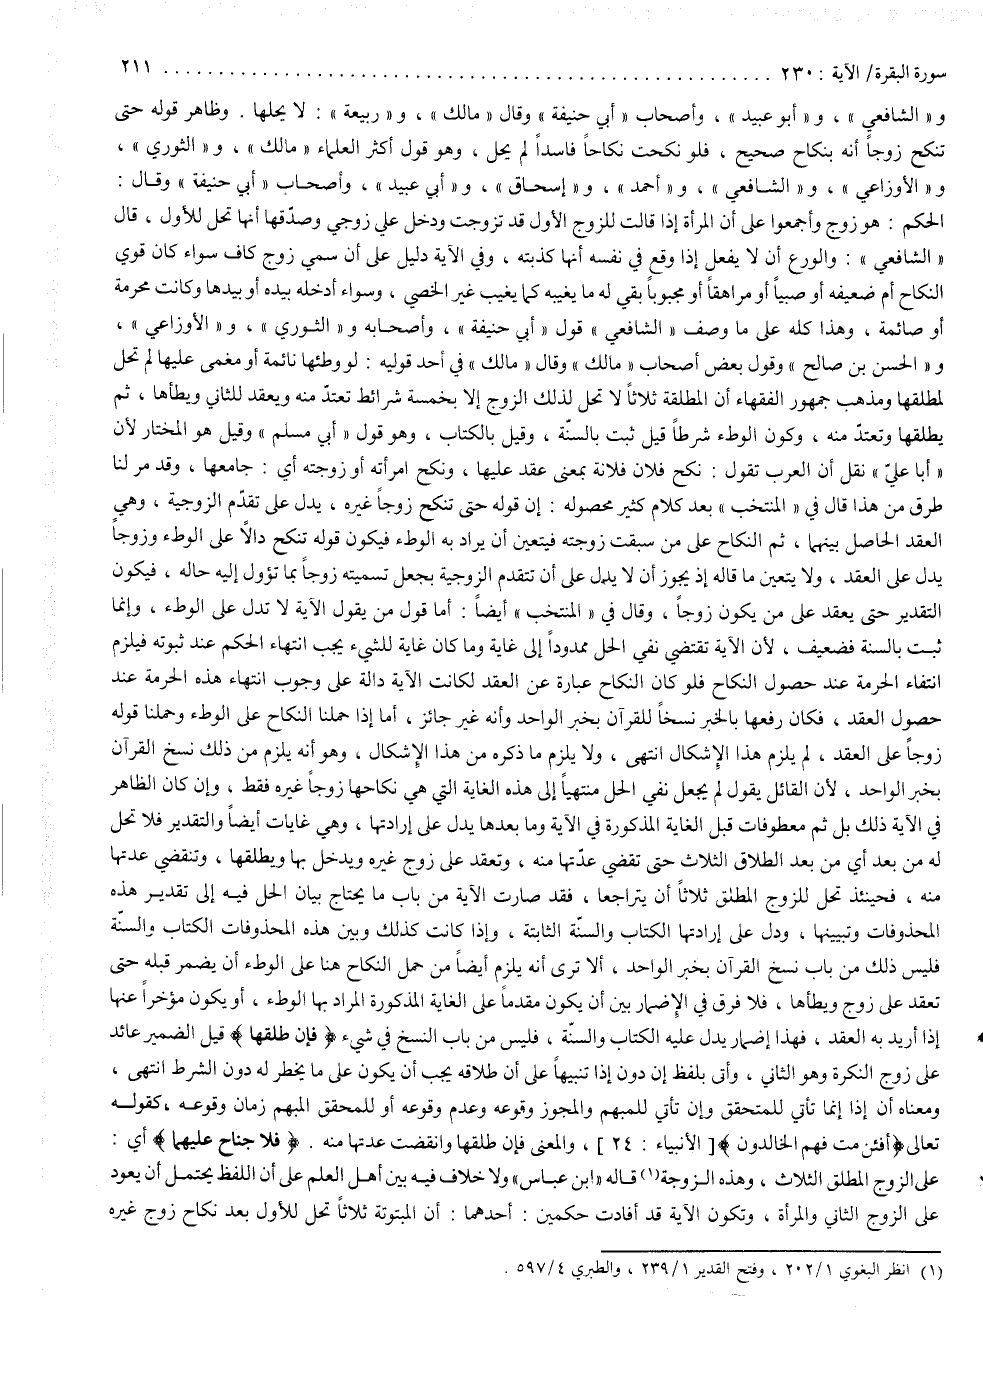 سورة البقرة/ الآية : ٢٣٠ ........................................................ ٢١١
و « الشافعي » ، و « أبو عبيد » ، وأصحاب « أبي حنيفة » وقال « مالك » ، و « ربيعة » : لا يحلها . وظاهر قوله حتى
تنكح زوجاً أنه بنكاح صحيح ، فلو نكحت نكاحاً فاسداً لم يحل ، وهو قول أكثر العلماء « مالك » ، و « الثوري » ،
و « الأوزاعي » ، و « الشافعي » ، و « أحمد » ، و « إسحاق » ، و « أبي عبيد » ، وأصحاب « أبي حنيفة » وقال :
الحكم : هو زوج وأجمعوا على أن المرأة إذا قالت للزوج الأول قد تزوجت ودخل علي زوجي وصدّقها أنها تحل للأول ، قال
« الشافعي » : والورع أن لا يفعل إذا وقع في نفسه أنها كذبته ، وفي الآية دليل على أن سمي زوج كاف سواء كان قوي
النكاح أم ضعيفه أو صبياً أو مراهقاً أو مجبوباً بقي له ما يغيبه كما يغيب غير الخصي ، وسواء أدخله بيده أو بيدها وكانت محرمة
أو صائمة ، وهذا كله على ما وصف « الشافعي » قول « أبي حنيفة » ، وأصحابه و « الثوري » ، و « الأوزاعي » ،
و « الحسن بن صالح » وقول بعض أصحاب « مالك » وقال « مالك » في أحد قوليه : لو وطئها نائمة أو مغمى عليها لم تحل
لمطلقها ومذهب جمهور الفقهاء أن المطلقة ثلاثاً لا تحل لذلك الزوج إلا بخمسة شرائط تعتدّ منه ويعقد للثاني ويطأها ، ثم
يطلقها وتعتدّ منه ، وكون الوطء شرطاً قيل ثبت بالسنّة ، وقيل بالكتاب ، وهو قول « أبي مسلم » وقيل هو المختار لأن
« أبا عليّ » نقل أن العرب تقول : نكح فلان فلانة بمعنى عقد عليها ، ونكح امرأته أو زوجته أي : جامعها ، وقد مر لنا
طرق من هذا قال في « المنتخب » بعد كلام كثير محصوله : إن قوله حتى تنكح زوجاً غيره ، يدل على تقدّم الزوجية ، وهي
العقد الحاصل بينهما ، ثم النكاح على من سبقت زوجته فيتعين أن يراد به الوطء فيكون قوله تنكح دالاً على الوطء وزوجاً
يدل على العقد ، ولا يتعين ما قاله إذ يجوز أن لا يدل على أن تتقدم الزوجية بجعل تسميته زوجاً بما تؤول إليه حاله ، فيكون
التقدير حتى يعقد على من يكون زوجاً ، وقال في « المنتخب » أيضاً : أما قول من يقول الآية لا تدل على الوطء ، وإنما
ثبت بالسنة فضعيف ، لأن الآية تقتضي نفي الحل ممدوداً إلى غاية وما كان غاية للشيء يجب انتهاء الحكم عند ثبوته فيلزم
انتفاء الحرمة عند حصول النكاح فلو كان النكاح عبارة عن العقد لكانت الآية دالة على وجوب انتهاء هذه الحرمة عند
حصول العقد ، فكان رفعها بالخبر نسخاً للقرآن بخبر الواحد وأنه غير جائز ، أما إذا حملنا النكاح على الوطء وحملنا قوله
زوجاً على العقد ، لم يلزم هذا الإشكال انتهى ، ولا يلزم ما ذكره من هذا الإشكال ، وهو أنه يلزم من ذلك نسخ القرآن
بخبر الواحد ، لأن القائل يقول لم يجعل نفي الحل منتهياً إلى هذه الغاية التي هي نكاحها زوجاً غيره فقط ، وإن كان الظاهر
في الآية ذلك بل ثم معطوفات قبل الغاية المذكورة في الآية وما بعدها يدل على إرادتها ، وهي غايات أيضاً والتقدير فلا تحل
له من بعد أي من بعد الطلاق الثلاث حتى تقضي عدّتها منه ، وتعقد على زوج غيره ويدخل بها ويطلقها ، وتنقضي عدتها
منه ، فحينئذ تحل للزوج المطلق ثلاثاً أن يتراجعا ، فقد صارت الآية من باب ما يحتاج بيان الحل فيه إلى تقدير هذه
المحذوفات وتبيينها ، ودل على إرادتها الكتاب والسنة الثابتة ، وإذا كانت كذلك وبين هذه المحذوفات الكتاب والسنّة
فليس ذلك من باب نسخ القرآن بخبر الواحد ، ألا ترى أنه يلزم أيضاً من حمل النكاح هنا على الوطء أن يضمر قبله حتى
تعقد على زوج ويطأها ، فلا فرق في الإضمار بين أن يكون مقدماً على الغاية المذكورة المراد بها الوطء ، أو يكون مؤخراً عنها
إذا أريد به العقد ، فهذا إضمار يدل عليه الكتاب والسنّة ، فليس من باب النسخ في شيء ﴿ فإن طلقها ﴾ قيل الضمير عائد
على زوج النكرة وهو الثاني ، وأتى بلفظ إن دون إذا تنبيهاً على أن طلاقه يجب أن يكون على ما يخطر له دون الشرط انتهى ،
ومعناه أن إذا إنما تأتي للمتحقق وإن تأتي للمبهم والمجوز وقوعه وعدم وقوعه أو للمحقق المبهم زمان وقوعه ، كقوله
تعالى ﴿أفئن مت فهم الخالدون ﴾[ الأنبياء : ٢٤ ] ، والمعنى فإن طلقها وانقضت عدتها منه . ﴿ فلا جناح عليهما ﴾ أي :
على الزوج المطلق الثلاث ، وهذه الزوجة(١) قاله «ابن عباس» ولا خلاف فيه بين أهل العلم على أن اللفظ يحتمل أن يعود
على الزوج الثاني والمرأة ، وتكون الآية قد أفادت حكمين : أحدهما : أن المبتوتة ثلاثاً تحل للأول بعد نكاح زوج غيره
(١) انظر البغوي ٢٠٢/١ ، وفتح القدير ٢٣٩/١ ، والطبري ٥٩٧/٤ .